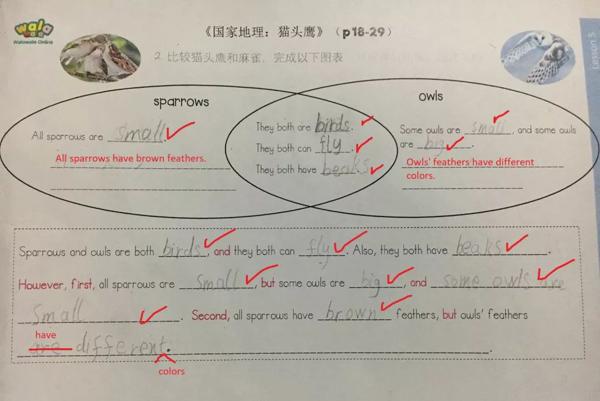 walo
Walawala Online
《国家地理：猫头鹰》（p18-29）
Lesson 5
2. 比较猫头鹰和麻雀，完成以下图表
sparrows
owls
All sparrows are small.
All sparrows have brown feathers.
They both are birds.
They both can fly.
They both have beaks.
Some owls are small, and some owls
are big.
Owls' feathers have different
colors.
Sparrows and owls are both birds, and they both can fly. Also, they both have beaks.
However, first, all sparrows are small, but some owls are big, and some owls are
small. Second, all sparrows have brown feathers, but owls' feathers
have
are different.
colors